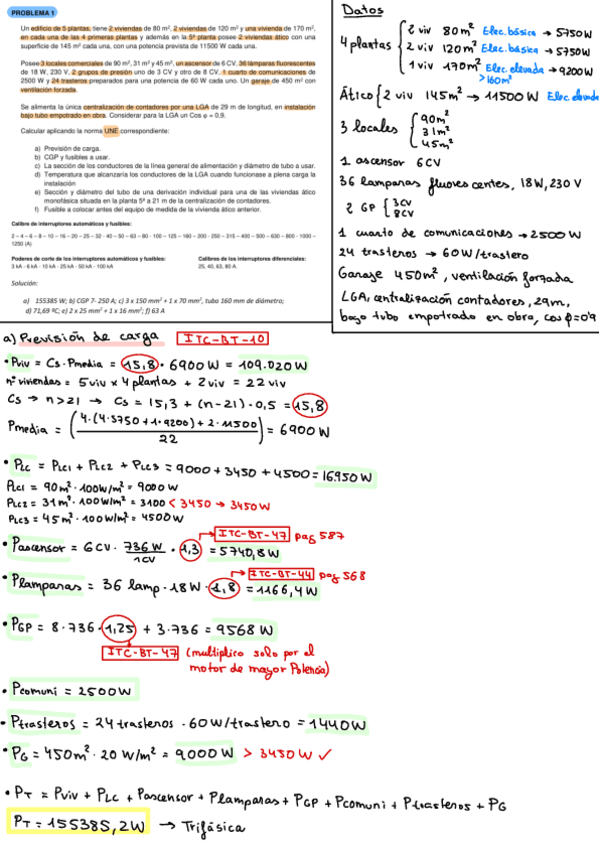 PROBLEMA 1
Un edificio de 5 plantas, tiene 2 viviendas de 80 m², 2 viviendas de 120 m² y una vivienda de 170 m²,
en cada una de las 4 primeras plantas y además en la 5ª planta posee 2 viviendas ático con una
superficie de 145 m² cada una, con una potencia prevista de 11500 W cada una.
Posee 3 locales comerciales de 90 m², 31 m² y 45 m², un ascensor de 6 CV, 36 lámparas fluorescentes
de 18 W, 230 V, 2 grupos de presión uno de 3 CV y otro de 8 CV, 1 cuarto de comunicaciones de
2500 W y 24 trasteros preparados para una potencia de 60 W cada uno. Un garaje de 450 m² con
ventilación forzada.
Se alimenta la única centralización de contadores por una LGA de 29 m de longitud, en instalación
bajo tubo empotrado en obra. Considerar para la LGA un Cos φ = 0,9.
Calcular aplicando la norma UNE correspondiente:
a) Previsión de carga.
b) CGP y fusibles a usar.
c) La sección de los conductores de la línea general de alimentación y diámetro de tubo a usar.
d) Temperatura que alcanzaría los conductores de la LGA cuando funcionase a plena carga la
instalación
e) Sección y diámetro del tubo de una derivación individual para una de las viviendas ático
monofásica situada en la planta 5ª a 21 m de la centralización de contadores.
f) Fusible a colocar antes del equipo de medida de la vivienda ático anterior.
Calibre de interruptores automáticos y fusibles:
2 – 4 – 6 – 8 – 10 – 16 – 20 – 25 – 32 - 40 – 50 – 63 – 80 - 100 – 125 – 160 – 200 - 250 – 315 – 400 – 500 – 630 – 800 - 1000 –
1250 (A)
Poderes de corte de los interruptores automáticos y fusibles:
3 kA - 6 kA - 10 kA - 25 kA - 50 kA - 100 kA
Calibres de los interruptores diferenciales:
25, 40, 63, 80 A.
Solución:
a) 155385 W; b) CGP 7- 250 A; c) 3 x 150 mm² + 1 x 70 mm², tubo 160 mm de diámetro;
d) 71,69 ºC; e) 2 x 25 mm² + 1 x 16 mm²; f) 63 A
Datos
4 plantas { 2 viv 80m² Elec. básica → 5750W
2 viv 120m² Elec. básica → 5750W
1 viv 170m² Elec. elevada → 9200W
>160m²
Ático { 2 viv 145m² → 11500W Elec. elevada
3 locales { 90m²
31m²
45m²
1 ascensor 6CV
36 lamparas fluorescentes, 18W, 230V
2 GP { 3CV
8CV
1 cuarto de comunicaciones → 2500W
24 trasteros → 60W/trastero
Garaje 450m², ventilación forzada
LGA, centralización contadores, 29m,
bajo tubo empotrado en obra, cos φ=0'9
a) Previsión de carga ITC-BT-10
• Pviv = Cs · Pmedia = 15,8 · 6900W = 109.020W
nº viviendas = 5 viv x 4 plantas + 2 viv = 22 viv
Cs → n>21 → Cs = 15,3 + (n-21)·0,5 = 15,8
Pmedia = (4·(4·5750+1·9200)+2·11500 / 22) = 6900W
• PLC = PLC1 + PLC2 + PLC3 = 9000 + 3450 + 4500 = 16950W
PLC1 = 90m²·100W/m² = 9000W
PLC2 = 31m²·100W/m² = 3100 < 3450 → 3450W
PLC3 = 45m²·100W/m² = 4500W
→ ITC-BT-47 pag 587
• Pascensor = 6CV · 736W/1CV · 1,3 = 5740,8W
→ ITC-BT-44 pag 568
• Plamparas = 36 lamp · 18W · 1,8 = 1166,4W
• PGP = 8·736·1,25 + 3·736 = 9568W
ITC-BT-47 (multiplico solo por el
motor de mayor Potencia)
• Pcomuni = 2500W
• Ptrasteros = 24 trasteros · 60W/trastero = 1440W
• PG = 450m² · 20W/m² = 9000W > 3450W ✓
• PT = Pviv + PLC + Pascensor + Plamparas + PGP + Pcomuni + Ptrasteros + PG
PT = 155385,2W → Trifásica